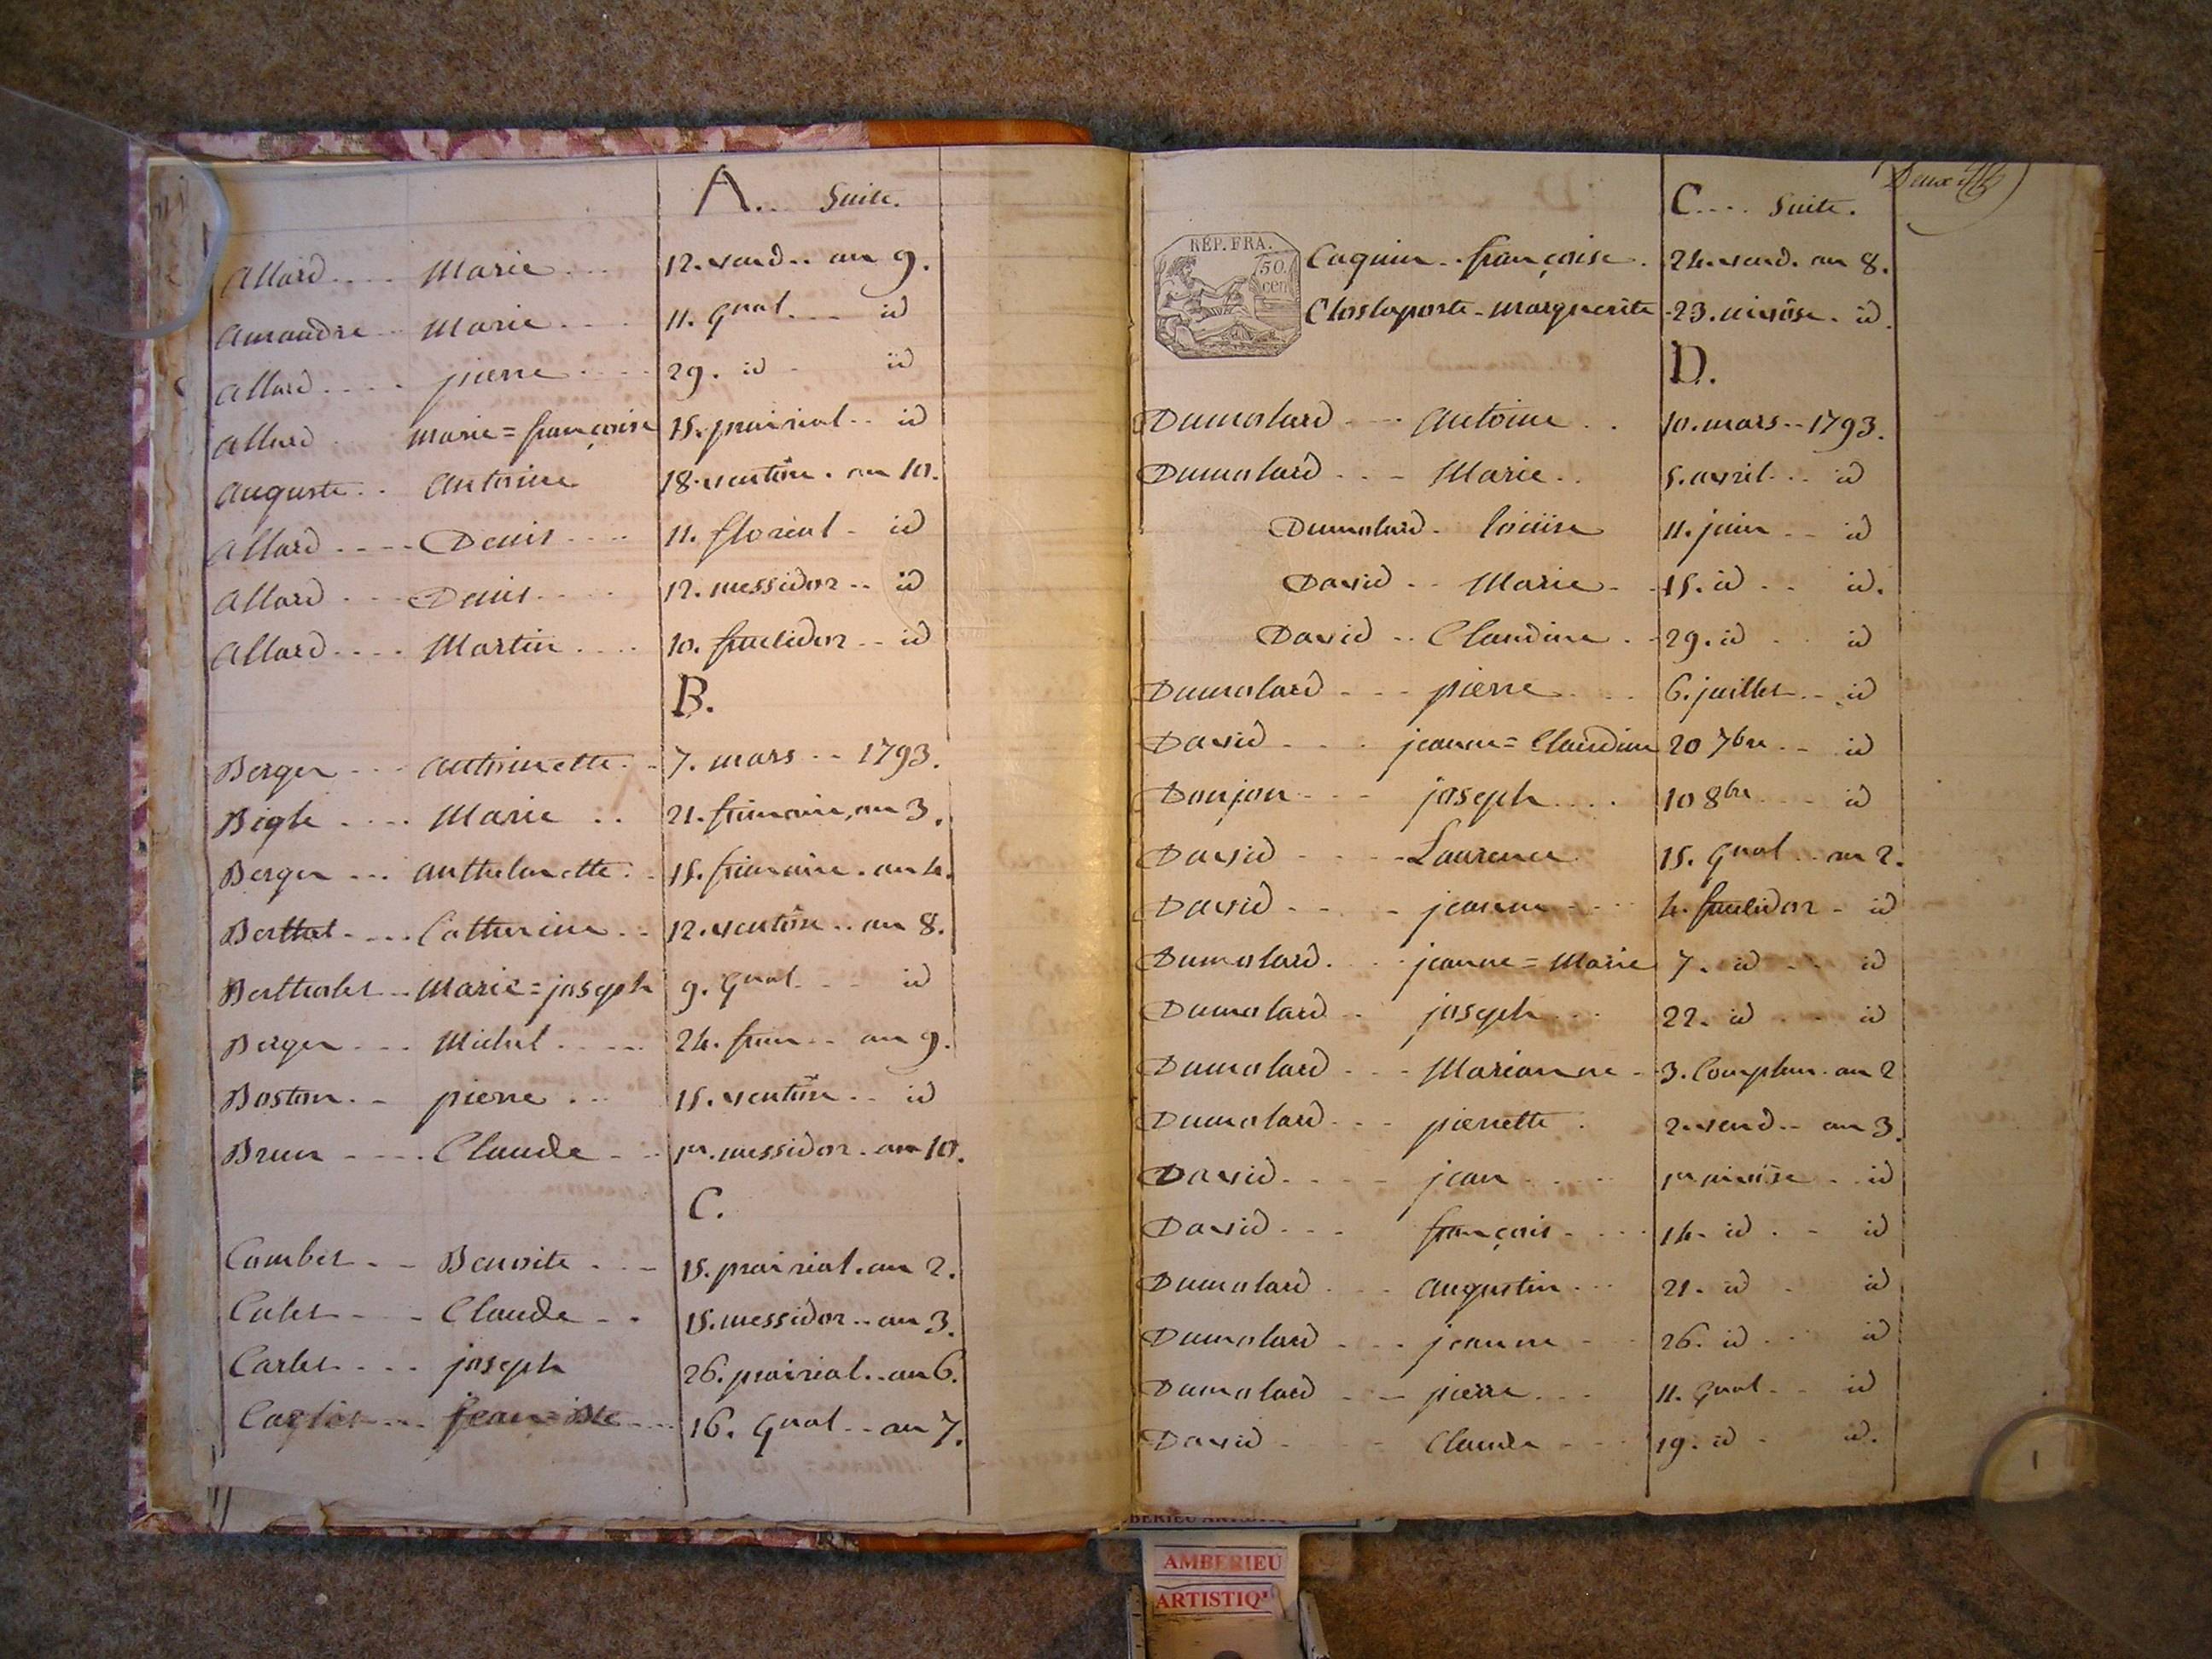 A... Suite.
Allard.... Marie... 12. vend.. an 9.
Amandre.. Marie.... 11. Gnal... id
Allard.... pierre.... 29. id - id
Allard. marie=françoise 15. prairial.. id
Auguste.. Antoine 18. ventôse. an 10.
Allard.... Denis.... 11. floréal - id
Allard... Denis.... 12. messidor.. id
Allard.... Martin.... 10. fructidor.. id
B.
Berger... Antoinette.. 7. mars.. 1793.
Bigle.... Marie.. 21. frimaire, an 3.
Berger... anthelmette.. 15. frimaire. an 4.
Berthet.... Catherine.. 12. ventôse.. an 8.
Bertholet.. Marie=joseph 9. Gnal... id
Berger... Michel..... 24. frim.. an 9.
Baston.. pierre... 15. ventôse.. id
Brun.... Claude... 1er. messidor. an 10.
C.
Combet.. Benoite... 15. prairial. an 2.
Calet... Claude.. 15. messidor.. an 3.
Carlet... joseph 26. prairial.. an 6.
jean=Bte.... 16. Gnal.. an 7.
Deux
C.... Suite.
RÉP. FRA.
50.
cen
Caquin.. françoise. 24. vend. an 8.
Closlaporte - marguerite - 23. nivôse. id.
D.
Dumolard... Antoine.. 10. mars.. 1793.
Dumolard... Marie.. 5. avril... id
Dumolard. loüise 11. juin.. id
David.. Marie.. 15. id.. id.
David.. Claudine.. 29. id.. id
Dumolard... pierre.... 6. juillet.. id
David.... jeanne=Claudine 20 7bre.. id
Donjon... joseph.... 10 8bre... id
David..... Laurence 15. Gnal.. an 2.
David.... jeanne.... 4. fructidor. id
Dumolard.... jeanne=Marie 7. id... id
Dumolard.. joseph... 22. id... id
Dumolard... Marianne.. 3. Complem. an 2
Dumolard... pierrette. 2. vend.. an 3.
David.... jean..... 1er nivôse.. id
David... françois.... 14. id.. id
Dumolard... Augustin... 21. id. id
Dumolard... jeanne.. 26. id.. id
Dumolard... pierre... 11. Gnal.. id
David.... Claude... 19. id. id.
BERIEU ARTISTIQ
AMBERIEU
ARTISTIQ